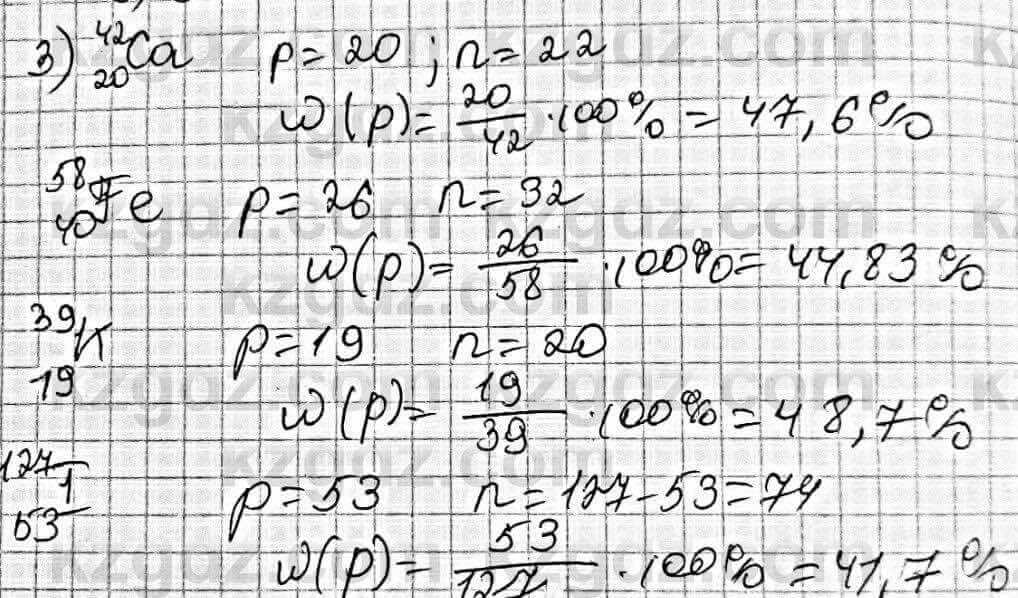 3) ⁴²₂₀Ca p = 20 ; n = 22
w(p) = 20/42 · 100% = 47,6%
⁵⁸₄₀Fe p = 26 n = 32
w(p) = 26/58 · 100% = 44,83%
³⁹₁₉K p = 19 n = 20
w(p) = 19/39 · 100% = 48,7%
¹²⁷₅₃I p = 53 n = 127 - 53 = 74
w(p) = 53/127 · 100% = 41,7%
kzgdz.com